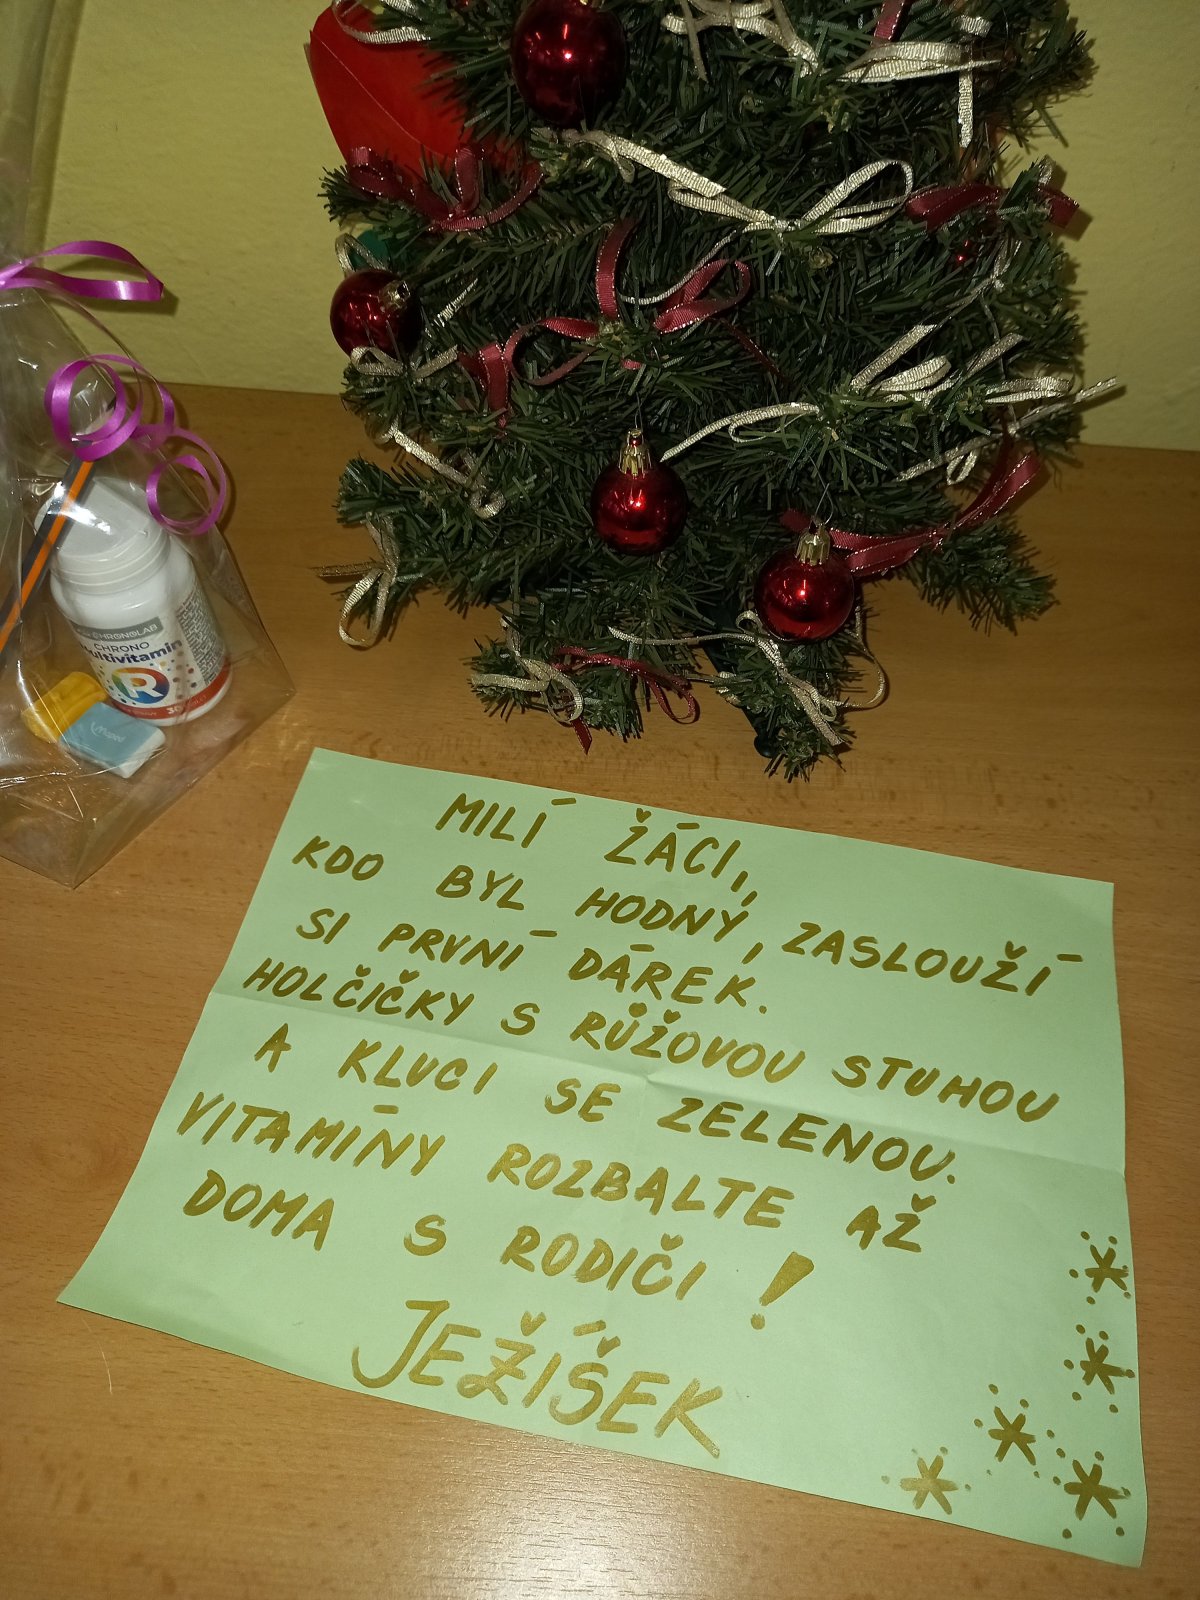 CHRONOLAB
CHRONO
Multivitamin
R
30
Maped
MILÍ ŽÁCI,
KDO BYL HODNÝ, ZASLOUŽÍ
SI PRVNÍ DÁREK.
HOLČIČKY S RŮŽOVOU STUHOU
A KLUCI SE ZELENOU.
VITAMÍNY ROZBALTE AŽ
DOMA S RODIČI!
JEŽÍŠEK